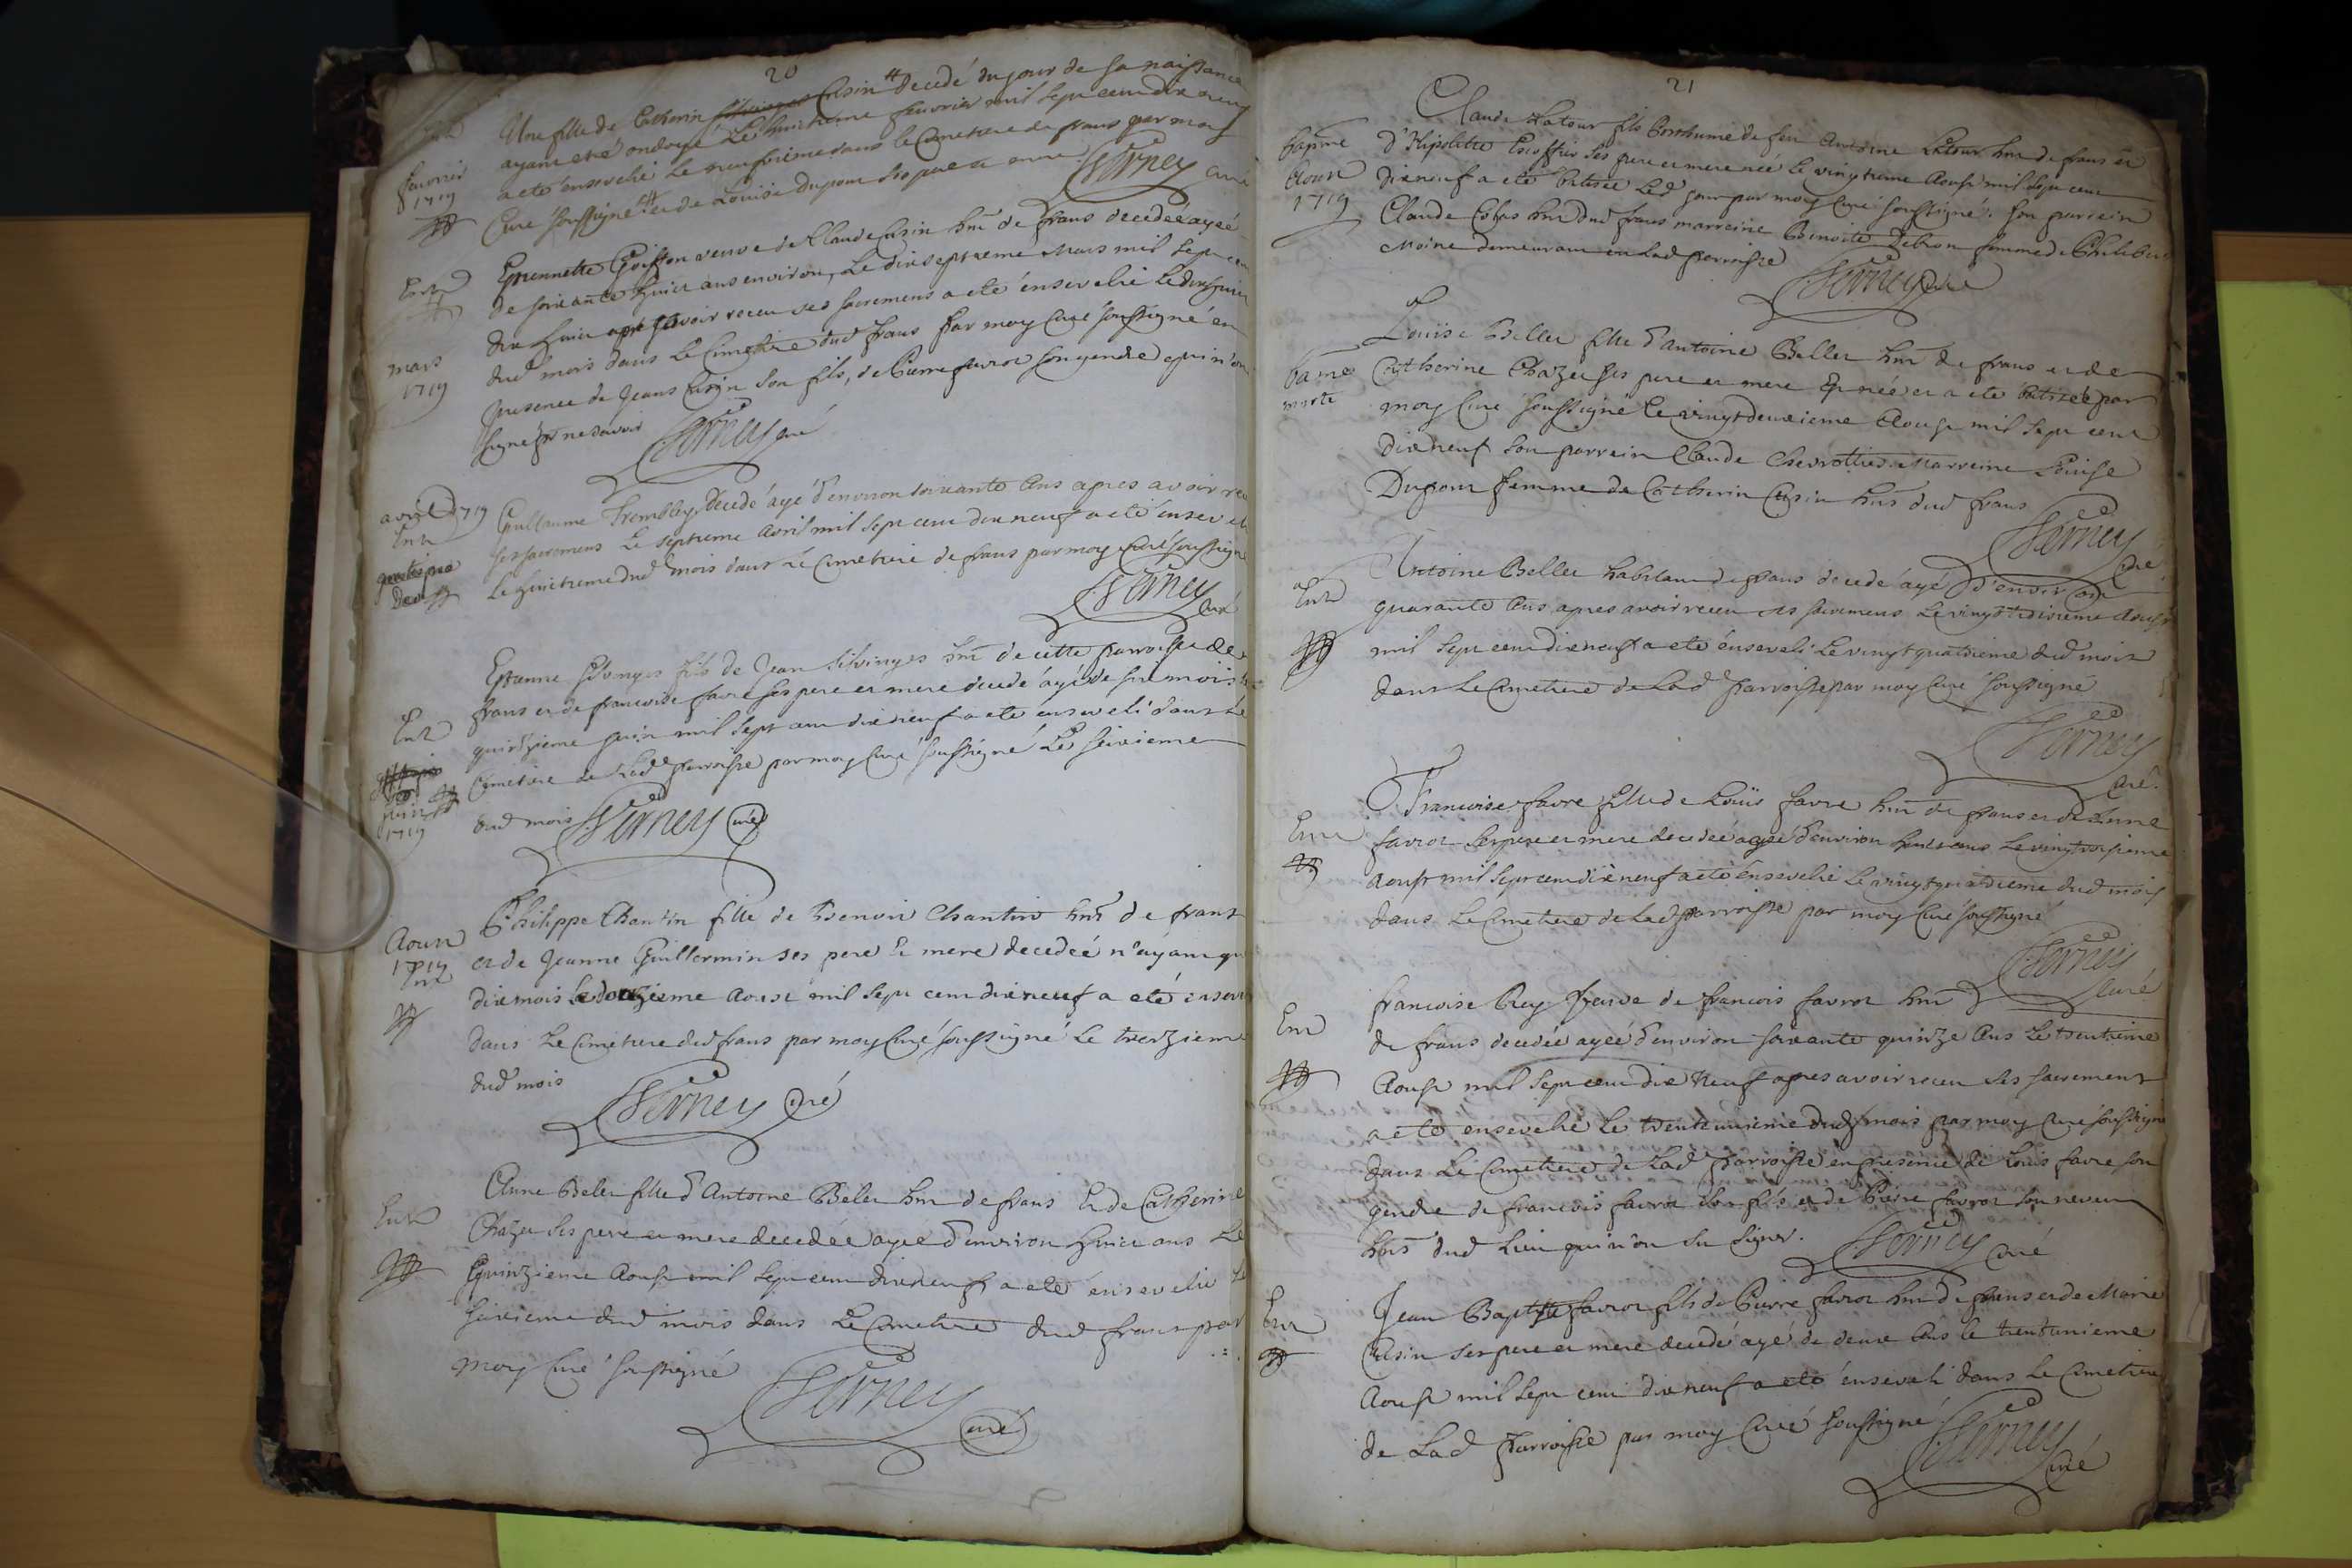 20
Une fille de Catherin Cusin decedé du jour de sa naissance
ayant eté ondoyé Le huictieme feuvrier mil sept cent dix neuf
a eté ensevelie Le neufvieme dans le Cimetiere de frans par moy
Curé soussigné et de Louise Dupont ses pere et mere
Verney curé
feuvrier
1719
Ent
Epiennette Goiffon veuve de Claude Cusin hnt de frans decedée agée
de soixante huict ans environ, Le dixseptieme Mars mil sept cent
dix huict apres avoir receu ses sacremens a eté ensevelie Le dixhuict
dud mois dans Le Cimetiere dud frans par moy Curé soussigné en
presence de Jean Cusin son fils, de Pierre favrot son gendre qui n'ont
signé pr ne scavoir
Verney curé
mars
1719
avril 1719
Ent
Guillaume Trembley Decedé agé d'environ soixante Ans apres avoir receu
ses sacremens Le septieme Avril mil sept cent dix neuf a eté enseveli
Le huictieme dud mois dans Le Cimetiere de frans par moy Curé soussigné
Verney curé
Ent
juin
1719
Etienne Silvinges fils de Jean Silvinges hnt de cette parroisse de
frans et de francoise favre ses pere et mere decedé agé de six mois Le
quinzieme juin mil sept cent dix neuf a eté enseveli dans Le
Cimetiere de Lade parroisse par moy Curé soussigné Le seixieme
dud mois
Verney curé
Aoust
1719
Ent
Philippe Chantin fille de Benoit Chantin hnt de frans
et de Jeanne Guillermin ses pere et mere decedeé n'ayant que
dix mois Le douzieme Aoust mil sept cent dix neuf a eté ensevelie
dans Le Cimetiere dud frans par moy Curé soussigné Le treizieme
dud mois
Verney curé
Ent
Anne Beler fille d'Antoine Beler hnt de frans Et de Catherine
Chazer ses pere et mere decedée agée d'environ huict ans Le
Quinzieme Aoust mil sept cent dix neuf a eté ensevelie Le
seixieme dud mois dans Le Cimetiere dud frans par
moy Curé soussigné
Verney
curé
21
bapme
Aoust
1719
Claude Latour fils Posthume de feu Antoine Latour hnt de frans et
d'Hipolitte Escoffier ses pere et mere né Le vingtieme Aoust mil sept cent
dix neuf a eté batisée Led jour par moy Curé soussigné. son parrein
Claude Colas hnt dud frans marreine Benoite Debon femme de Philibert
Moine demeurant en Lad parroisse
Verney Curé
bapme
morte
Louïse Beller fille d'Antoine Beller hnt de frans et de
Catherine Chazer ses pere et mere Est née et a eté batisée par
moy Curé soussigné Le vingtdeuxieme Aoust mil sept cent
dix neuf son parrein Claude Chevrottier Marreine Louise
Dupont femme de Catherin Cusin hns dud frans
Verney
curé
Ent
Antoine Beller habitant de frans decedé agé d'environ
quarante Ans apres avoir receu ses sacremens Le vingttroisieme Aoust
mil sept cent dix neuf a eté enseveli Le vingt quatrieme dud mois
dans Le Cimetiere de Lad parroisse par moy Curé soussigné
Verney
curé.
Ent
Francoise favre fille de Loüis favre hnt de frans et de Anne
favrot ses pere et mere decedeé agée d'environ huict ans Le vingttroisieme
Aoust mil sept cent dix neuf a eté ensevelie Le vingt quatrieme dud mois
dans Le Cimetiere de Lad parroisse par moy Curé soussigné
Verney
curé
Ent
francoise Rey veuve de francois favrot hnt
de frans decedée agée d'environ soixante quinze Ans Le trentieme
Aoust mil sept cent dix Neuf apres avoir receu ses sacremens
a eté ensevelie Le trenteunieme dud mois par moy Curé soussigné
dans Le Cimetiere de Lad parroisse en presence de Loüis favre son
gendre de francois favrot son fils et de Pierre favrot son neveu
hns dud Lieu qui n'ont su signer.
Verney curé
Ent
Jean Baptiste favrot fils de Pierre favrot hnt de frans et de Marie
Cusin ses pere et mere decedé agé de deux Ans le trentunieme
Aoust mil sept cent dix neuf a eté enseveli dans Le Cimetiere
de Lad Parroisse par moy Curé soussigné
Verney
curé